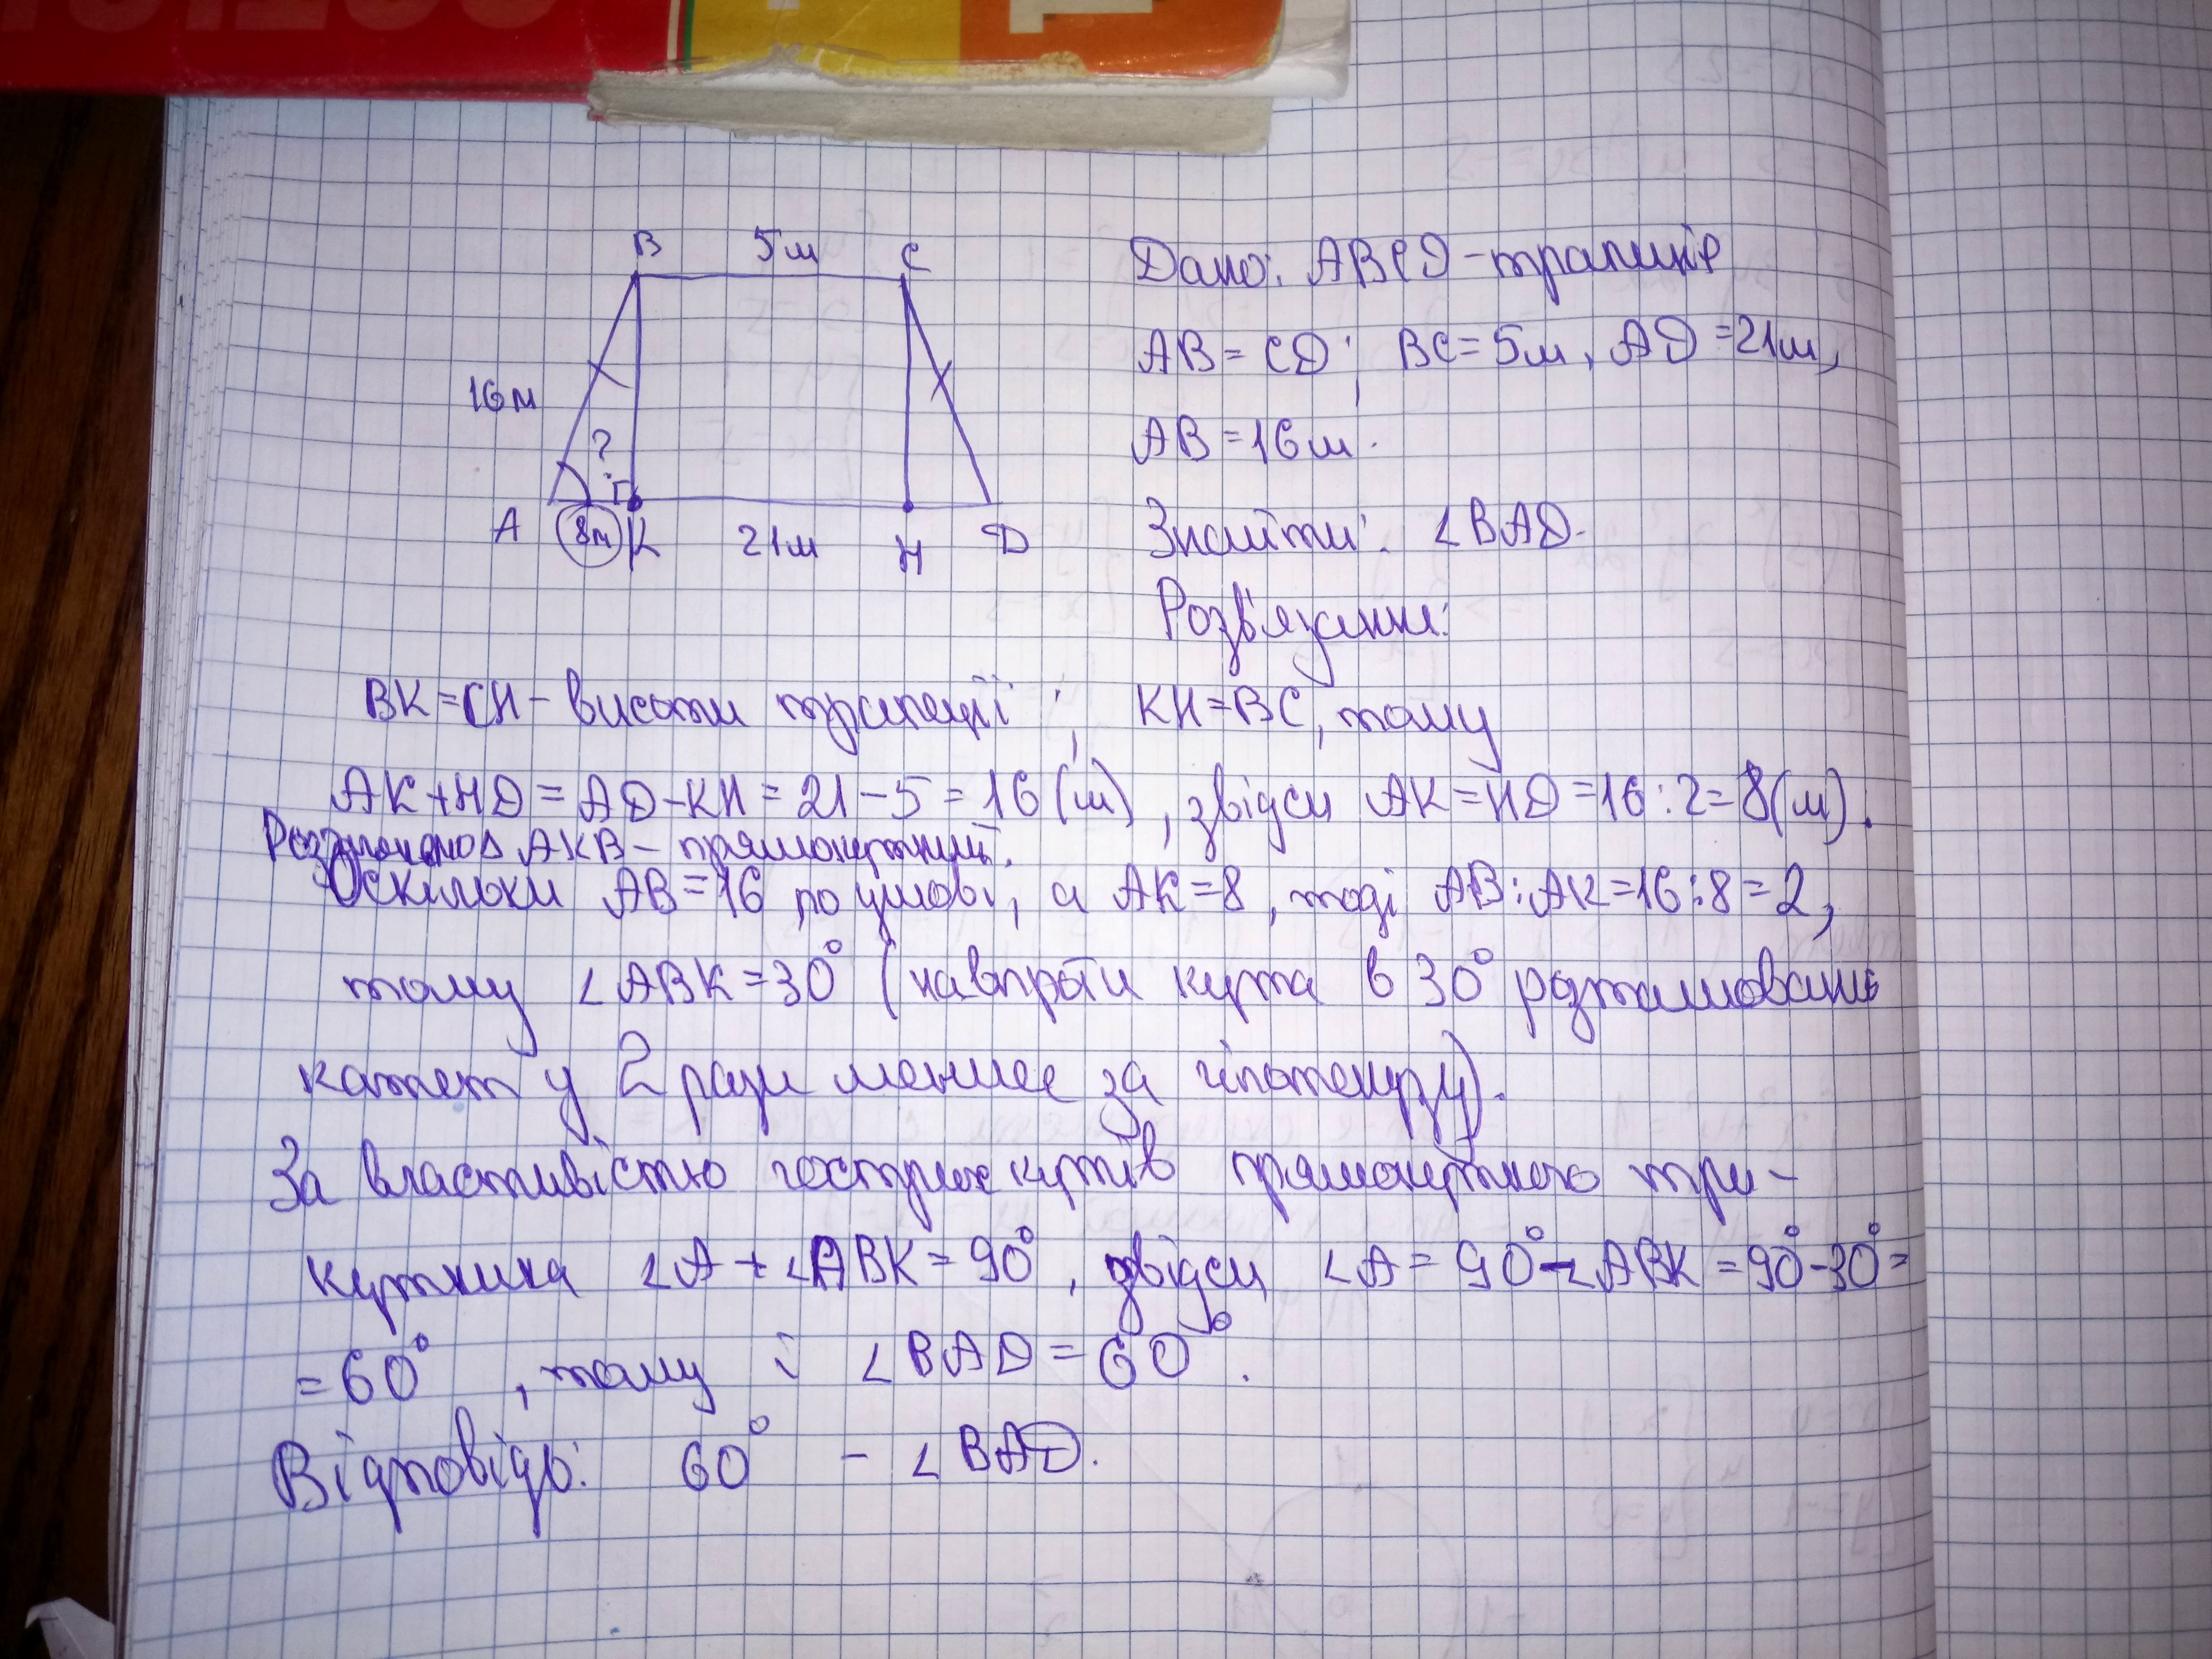 В 5м С
16м
?
А 8м К 21м Н D
Дано: ABCD - трапеція
AB = CD; BC = 5м, AD = 21м,
AB = 16м.
Знайти: ∠BAD.
Розв'язання:
BK = CH - висоти трапеції; KH = BC, тому
AK + HD = AD - KH = 21 - 5 = 16 (м), звідси AK = HD = 16 : 2 = 8 (м).
Розглянемо Δ AKB - прямокутний.
Оскільки AB = 16 по умові, а AK = 8, тоді AB : AK = 16 : 8 = 2,
тому ∠ABK = 30° (навпроти кута в 30° розташовано
катет у 2 рази менше за гіпотенузу).
За властивістю гострих кутів прямокутного три-
кутника ∠A + ∠ABK = 90°, звідси ∠A = 90° - ∠ABK = 90° - 30° =
= 60°, тому і ∠BAD = 60°.
Відповідь: 60° - ∠BAD.